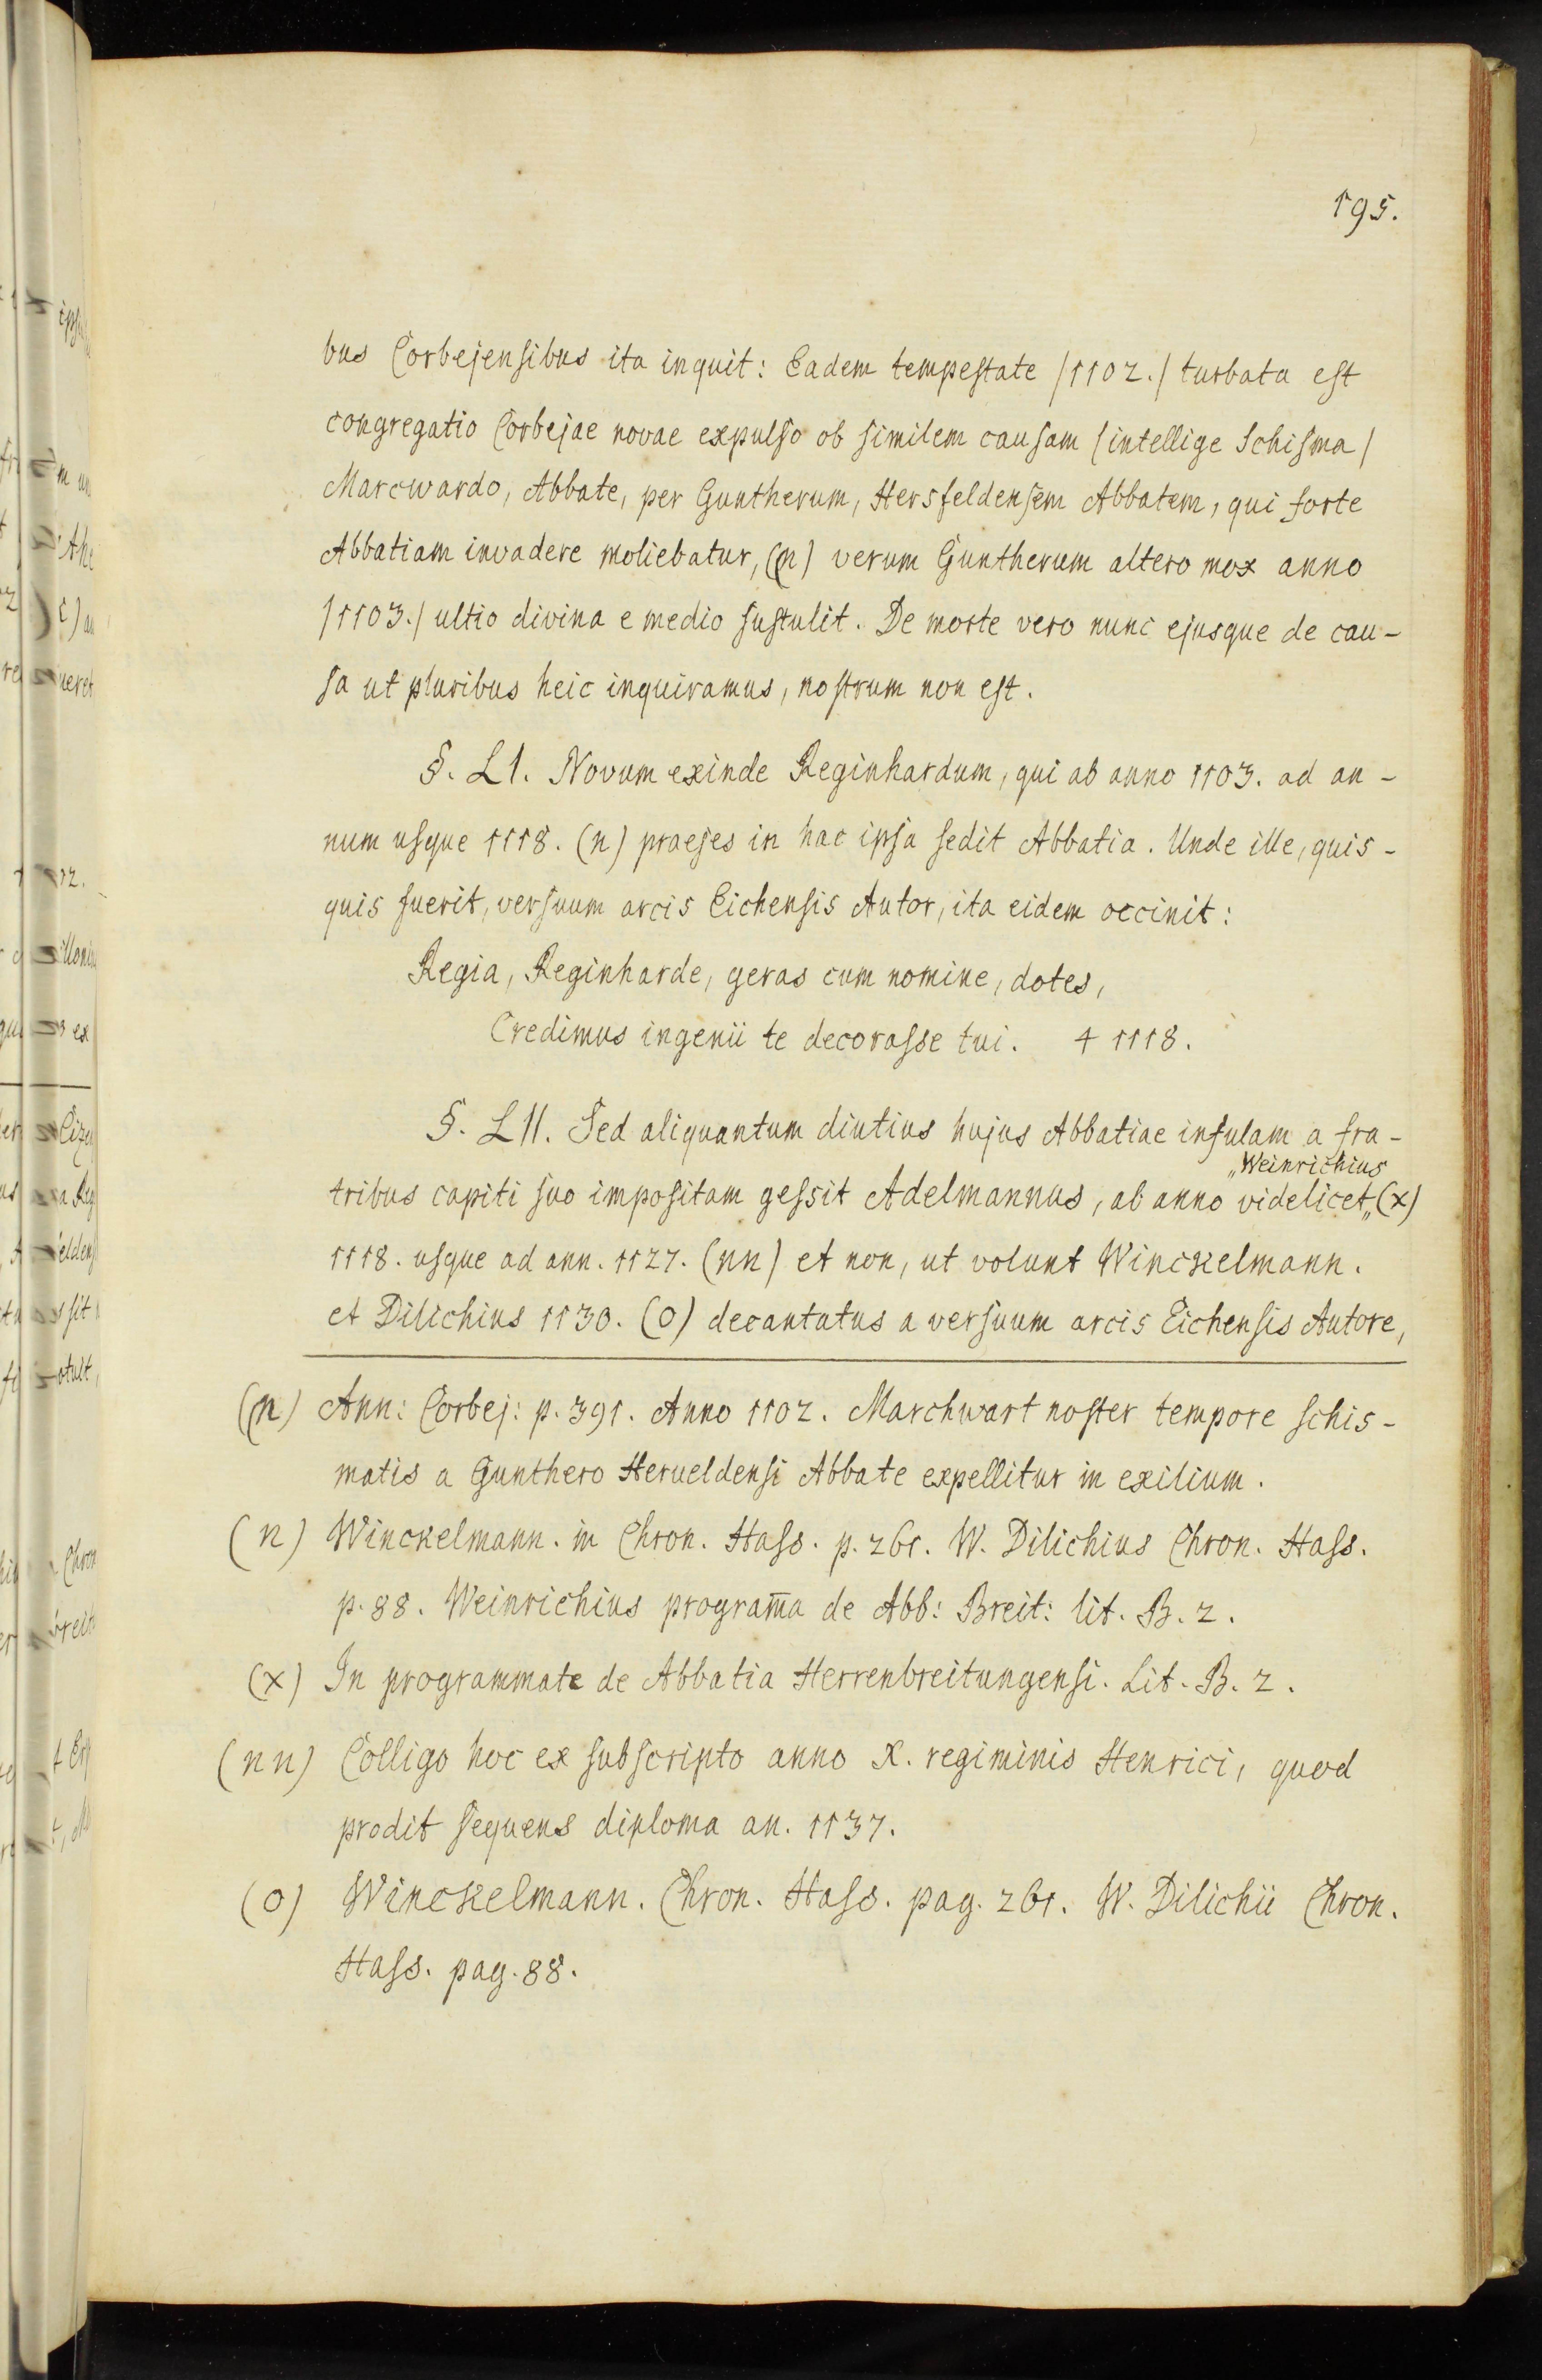 195.
bus Corbejensibus ita inquit: Eadem tempestate /1102./ turbata est
congregatio Corbejae novae expulso ob similem causam /intellige Schisma/
Marcwardo, Abbate, per Guntherum, Hersfeldensem Abbatem, qui forte
Abbatiam invadere moliebatur, (m) verum Guntherum altero mox anno
/1103./ ultio divina e medio sustulit. De morte vero nunc ejusque de cau-
sa ut pluribus heic inquiramus, nostrum non est.
§. LI. Novum exinde Reginhardum, qui ab anno 1103. ad an-
num usque 1118. (n) praeses in hac ipsa sedit Abbatia. Unde ille, quis-
quis fuerit, versuum arcis Eichensis Autor, ita eidem occinit:
Regia, Reginharde, geras cum nomine, dotes,
Credimus ingenii te decorasse tui. † 1118.
§. LII. Sed aliquantum diutius hujus Abbatiae infulam a fra-
"Weinrichius
tribus capiti suo impositam gessit Adelmannus, ab anno videlicet" (x)
1118. usque ad ann. 1127. (nn) et non, ut volunt Winckelmann.
et Dilichius 1130. (o) decantatus a versuum arcis Eichensis Autore,
(m) Ann: Corbej: p. 391. Anno 1102. Marchwart noster tempore schis-
matis a Gunthero Herueldensi Abbate expellitur in exilium.
(n) Winckelmann. in Chron. Hass. p. 261. W. Dilichius Chron. Hass.
p. 88. Weinrichius program̄a de Abb: Breit: lit. B. 2.
(x) In programmate de Abbatia Herrenbreitungensi. Lit. B. 2.
(nn) Colligo hoc ex subscripto anno X. regiminis Henrici, quod
prodit sequens diploma an. 1137.
(o) Winckelmann. Chron. Hass. pag. 261. W. Dilichii Chron.
Hass. pag. 88.